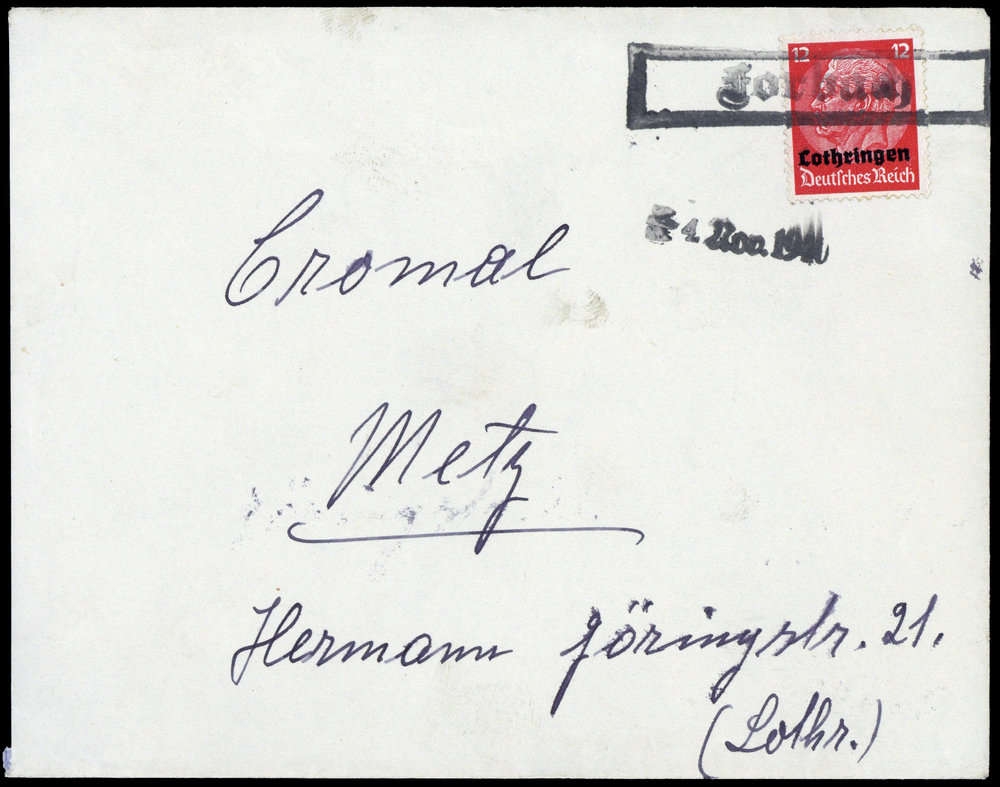 12 12
Forbach
Lothringen
Deutsches Reich
4. Nov. 194
Cromal
Metz
Hermann Göringstr. 21.
(Lothr.)